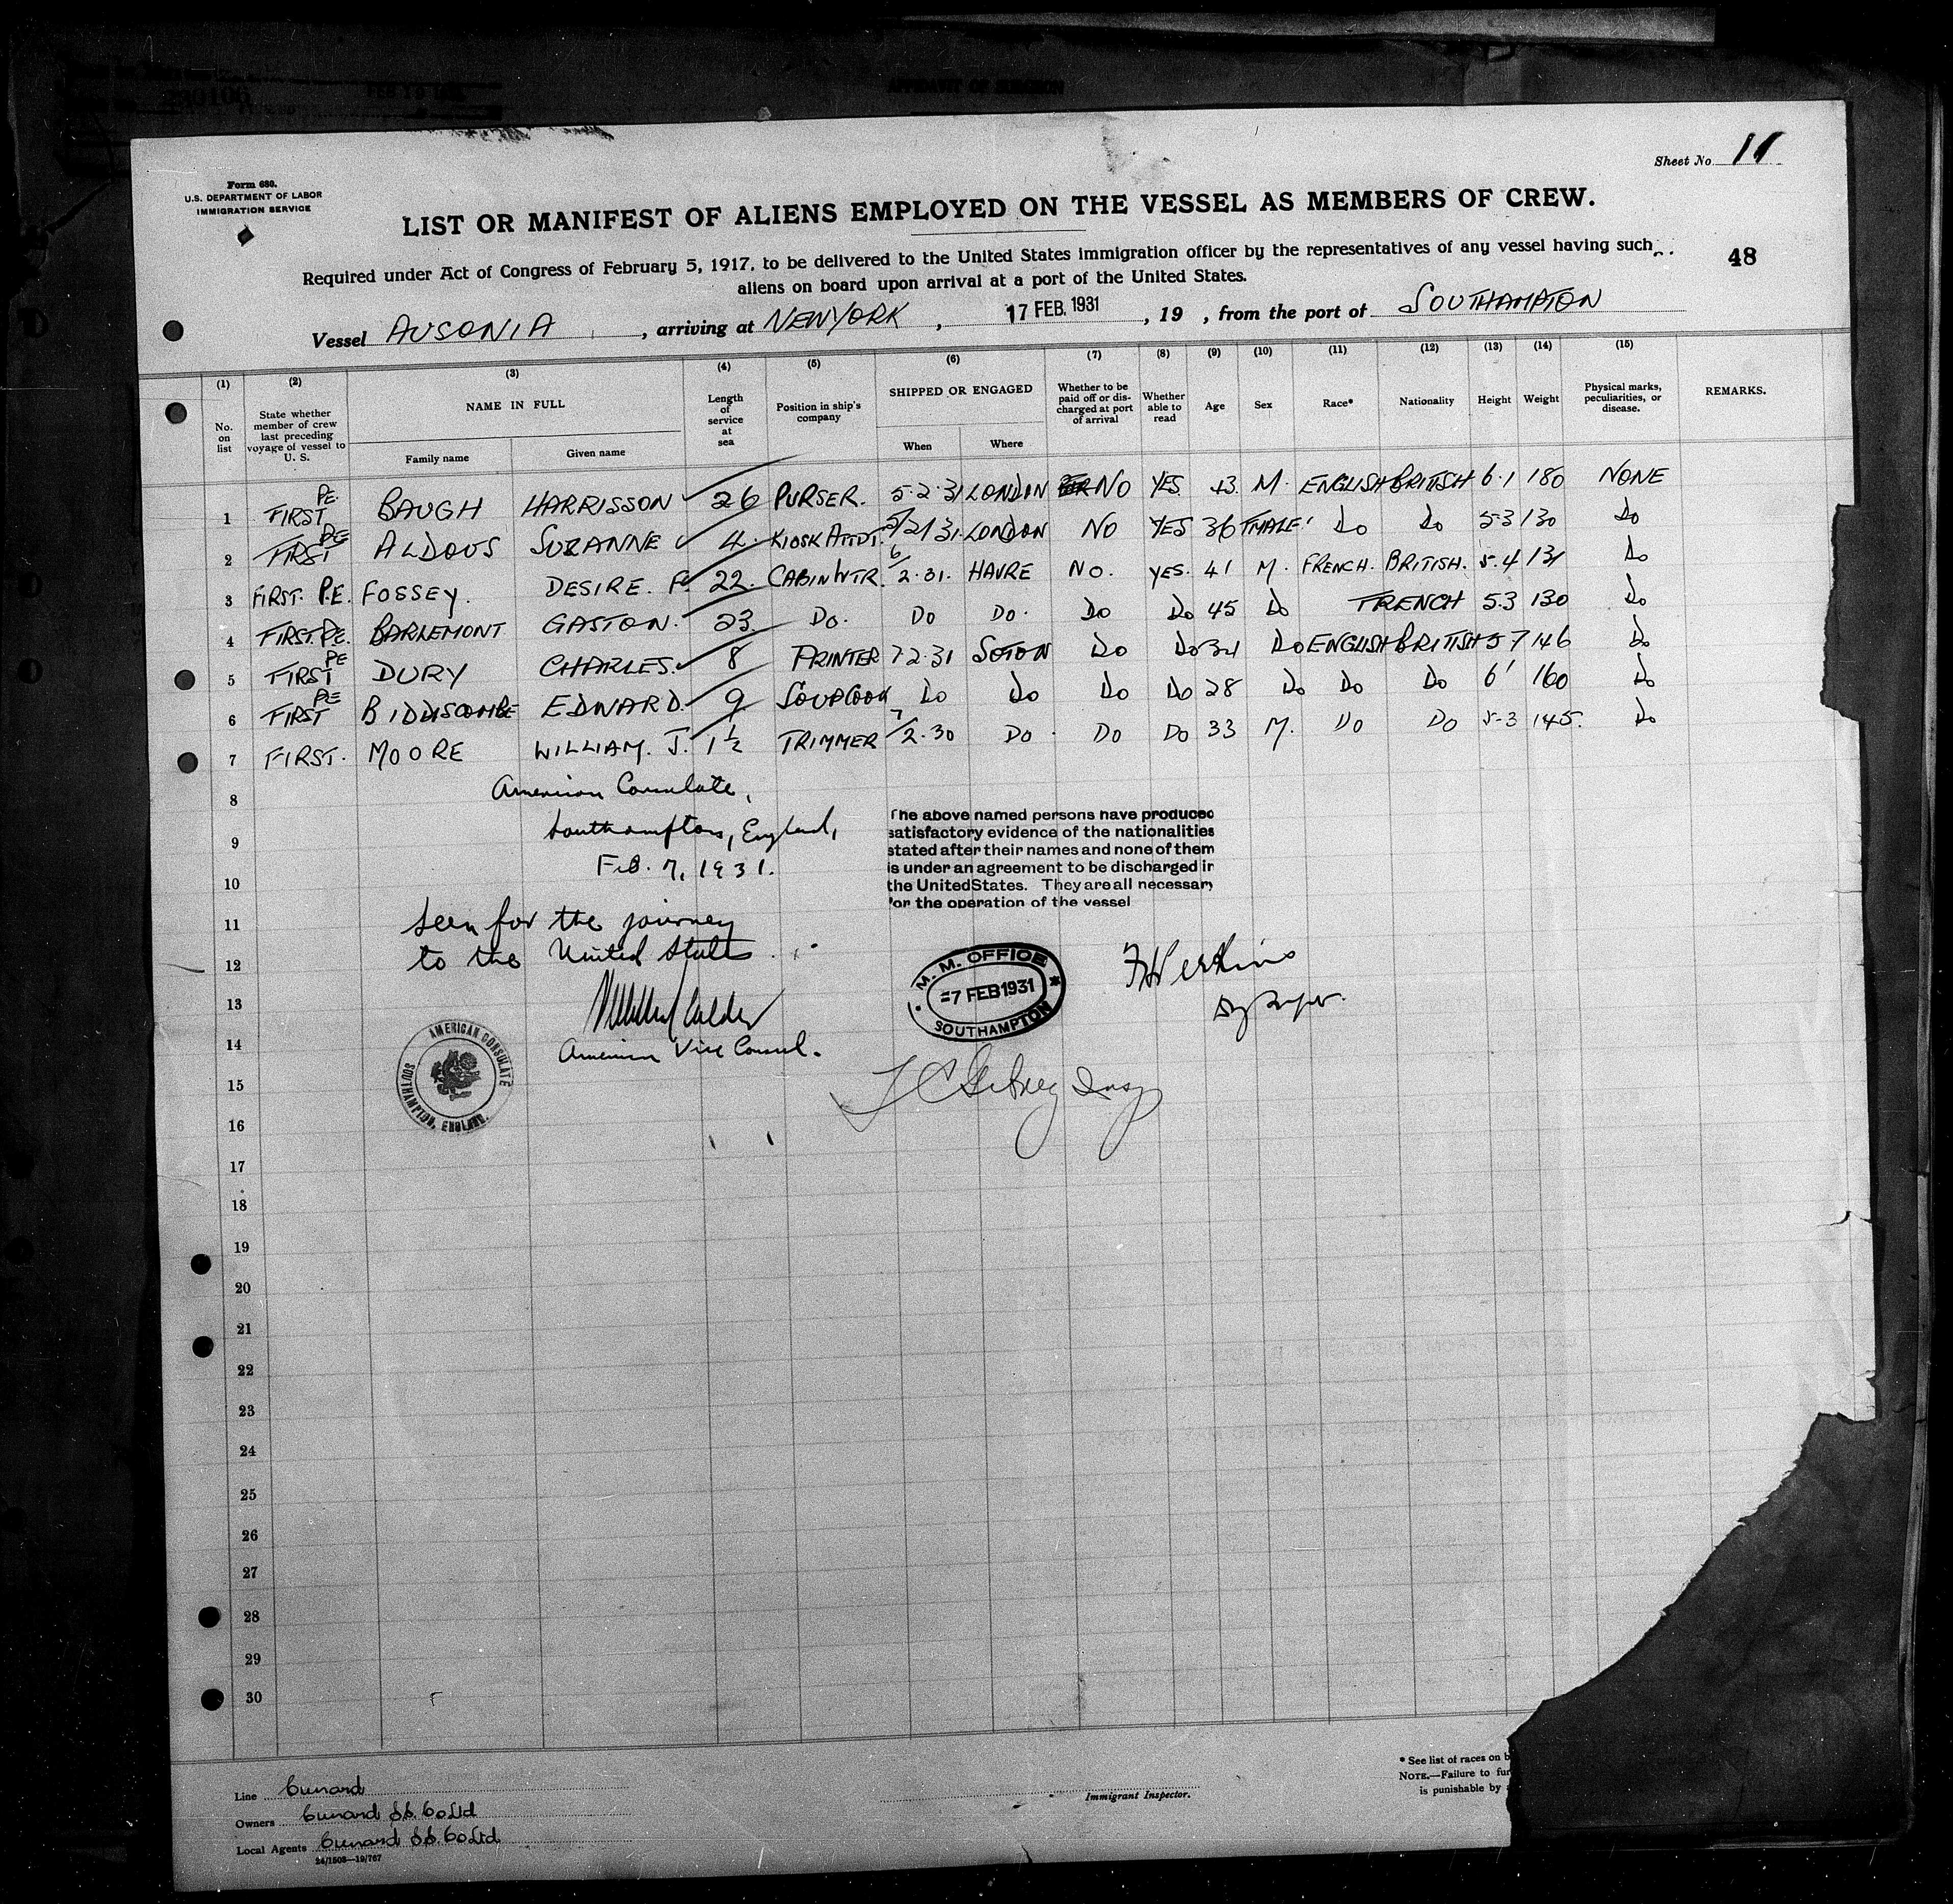 AFFIDAVIT OF SURGEON
Sheet No. 11
Form 680.
U.S. DEPARTMENT OF LABOR
IMMIGRATION SERVICE
LIST OR MANIFEST OF ALIENS EMPLOYED ON THE VESSEL AS MEMBERS OF CREW.
Required under Act of Congress of February 5, 1917, to be delivered to the United States immigration officer by the representatives of any vessel having such
aliens on board upon arrival at a port of the United States.
48
Vessel AUSONIA, arriving at NEW YORK, 17 FEB. 1931, 19 , from the port of SOUTHAMPTON
(1) (2) (3) (4) (5) (6) (7) (8) (9) (10) (11) (12) (13) (14) (15)
No. on list
State whether member of crew last preceding voyage of vessel to U. S.
NAME IN FULL
Family name
Given name
Length of service at sea
Position in ship's company
SHIPPED OR ENGAGED
When
Where
Whether to be paid off or discharged at port of arrival
Whether able to read
Age
Sex
Race*
Nationality
Height
Weight
Physical marks, peculiarities, or disease.
REMARKS.
1 FIRST PE. BAUGH HARRISSON 26 PURSER. 5.2.31 LONDON NO YES 43 M. ENGLISH BRITISH 6.1 180 NONE
2 FIRST PE ALDOUS SUZANNE 4. KIOSK ATTDT. 5/2/31. LONDON NO YES 36 FMALE Do Do 5-3 130 Do
3 FIRST. P.E. FOSSEY. DESIRE. F. 22. CABIN WTR. 6/2.31. HAVRE NO. YES. 41 M. FRENCH. BRITISH. 5.4 131 Do
4 FIRST. P.E. BARLEMONT GASTON. 23 Do. Do Do. Do Do 45 Do FRENCH 5.3 130 Do
5 FIRST PE DURY CHARLES. 8 PRINTER 7 2.31 SOTON Do Do 34 Do ENGLISH BRITISH 5 7 146 Do
6 FIRST PE BIDDISCOMBE EDWARD. 9 SOUPCOOK Do Do Do Do 28 Do Do Do 6' 160 Do
7 FIRST. MOORE WILLIAM. J. 1½ TRIMMER 7/2.30 Do. Do Do 33 M. Do Do 5-3 145. Do
8
9
10
11
12
13
14
15
16
17
18
19
20
21
22
23
24
25
26
27
28
29
30
American Consulate,
Southampton, England,
Feb. 7, 1931.
Seen for the journey
to the United States.
American Vice Consul.
AMERICAN CONSULATE
SOUTHAMPTON, ENGLAND.
The above named persons have produced
satisfactory evidence of the nationalities
stated after their names and none of them
is under an agreement to be discharged in
the United States. They are all necessary
for the operation of the vessel
M. M. OFFICE
7 FEB 1931
SOUTHAMPTON
Line Cunard
Owners Cunard SS. Co Ltd
Local Agents Cunard SS. Co Ltd.
24/1503—19/767
Immigrant Inspector.
* See list of races on b
NOTE.—Failure to fur
is punishable by